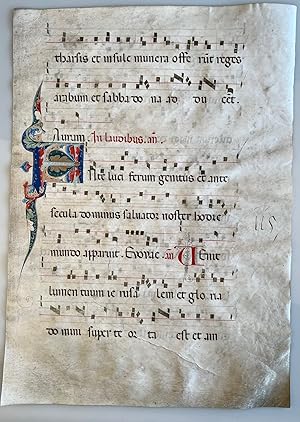 tharsis et insule munera offe rūt reges
arabum et sabba do na ad du cet.
Aurum. In laudibus. añ.
Ante luci ferum genitus et ante
secula dominus saluator noster hodie
mundo apparuit. Evovae. añ Venit
lumen tuum ie rusa lem et glo ria
domini super te or ta est et am
115